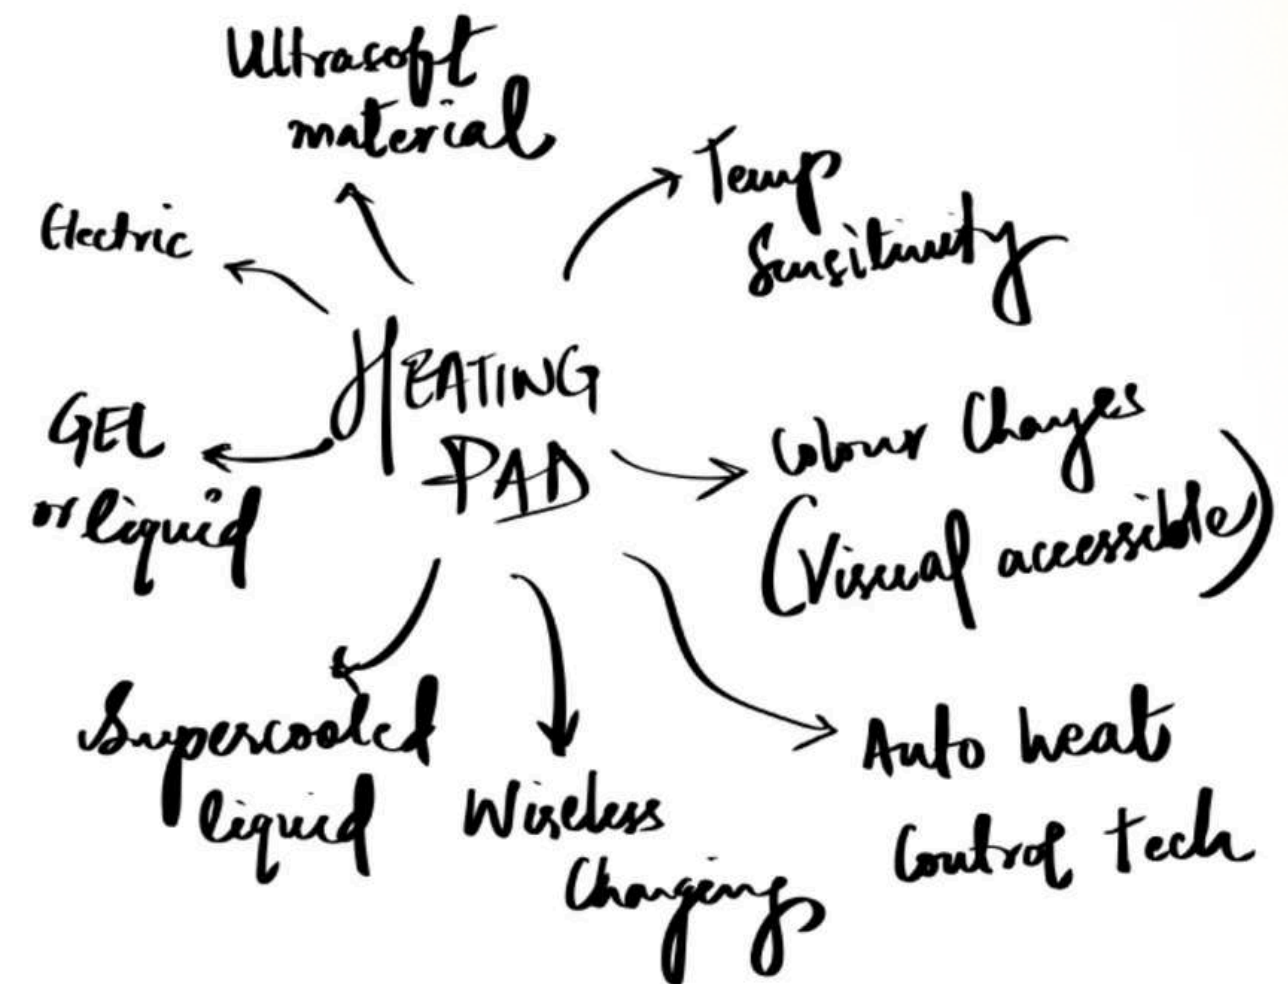 Ultrasoft
material
Electric
Temp
Sensitivity
HEATING
PAD
GEL
or liquid
Colour Changes
(Visual accessible)
Supercooled
liquid
Wireless
Charging
Auto heat
Control tech